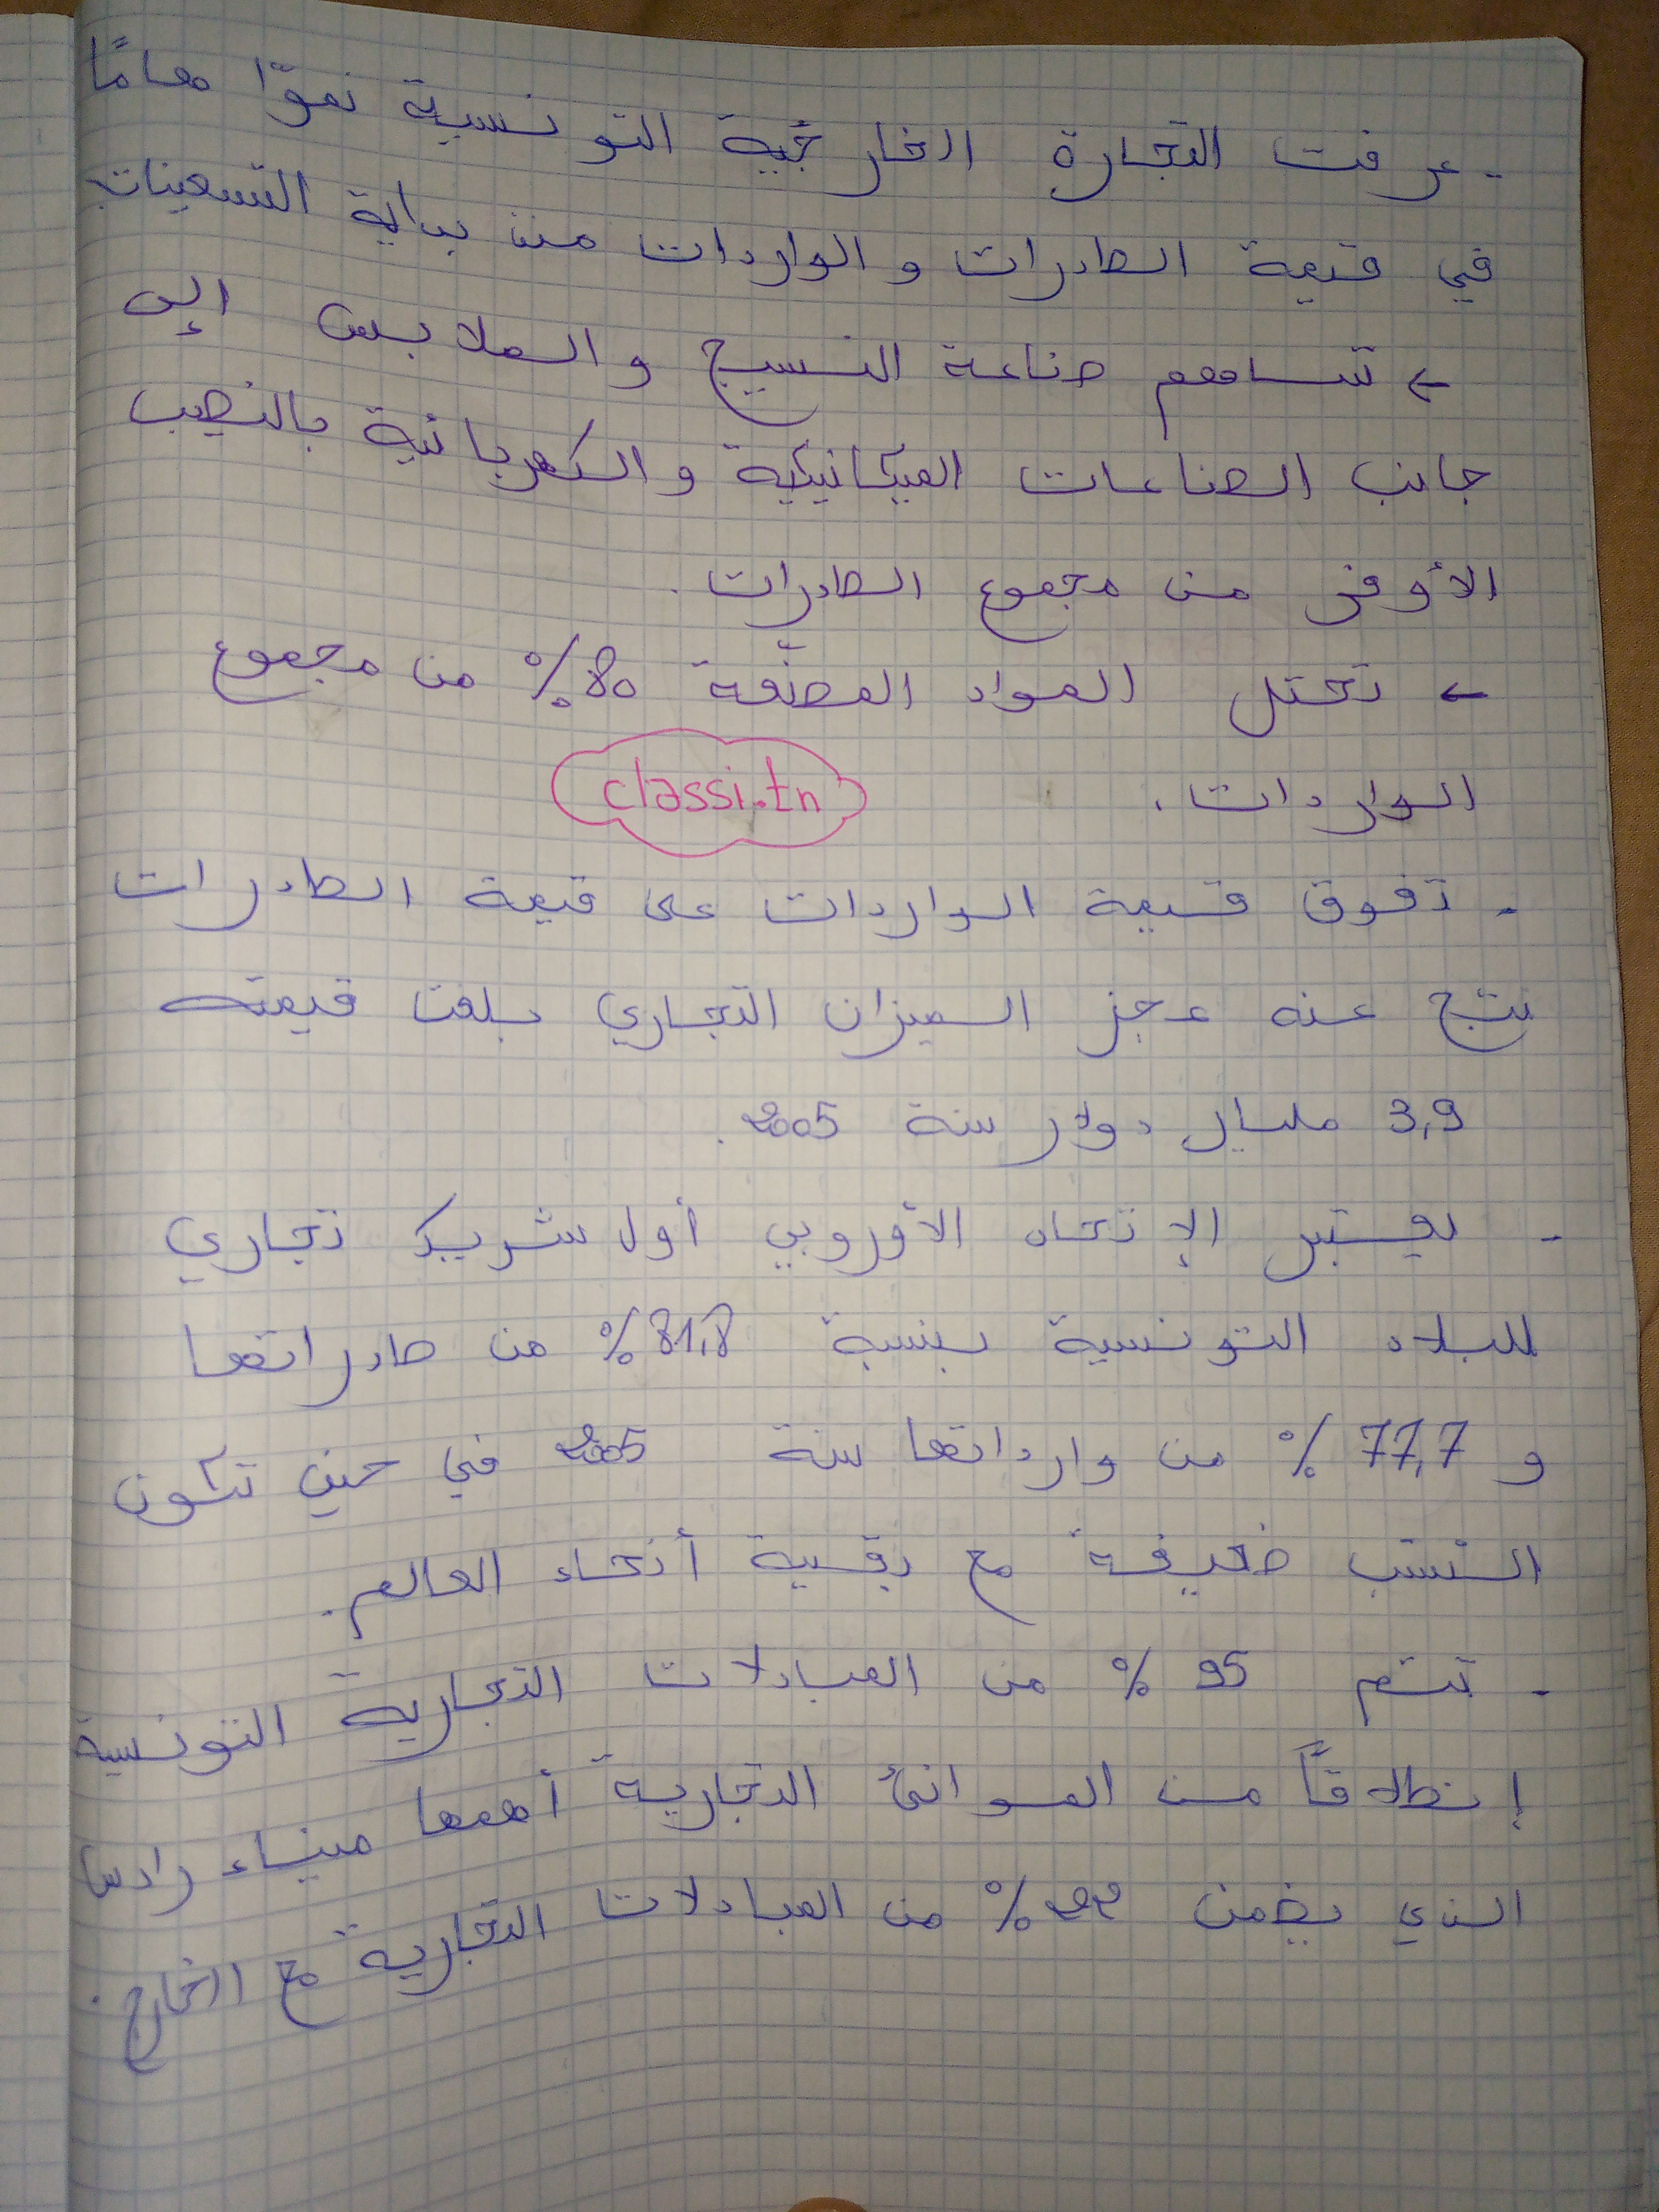 - عرفت التجارة الخارجية التونسية نموّا هامًا
في قيمة الصادرات و الواردات منذ بداية التسعينات
← تساهم صناعة النسيج و الملابس إلى
جانب الصناعات الميكانيكية و الكهربائية بالنصيب
الأوفر من مجموع الصادرات.
← تحتل المواد المصنّعة 80% من مجموع
الواردات.
classi.tn
- تفوق قيمة الواردات على قيمة الصادرات
نتج عنه عجز الميزان التجاري بلغت قيمته
3,9 مليار دولار سنة 2005.
- يعتبر الإتحاد الأوروبي أول شريك تجاري
للبلاد التونسية بنسبة 81,8% من صادراتها
و 77,7% من وارداتها سنة 2005 في حين تكون
النسب ضعيفة مع بقية أنحاء العالم.
- تتم 95% من المبادلات التجارية التونسية
إنطلاقاً من الموانئ التجارية أهمها ميناء رادس
الذي يضمن 22% من المبادلات التجارية مع الخارج.